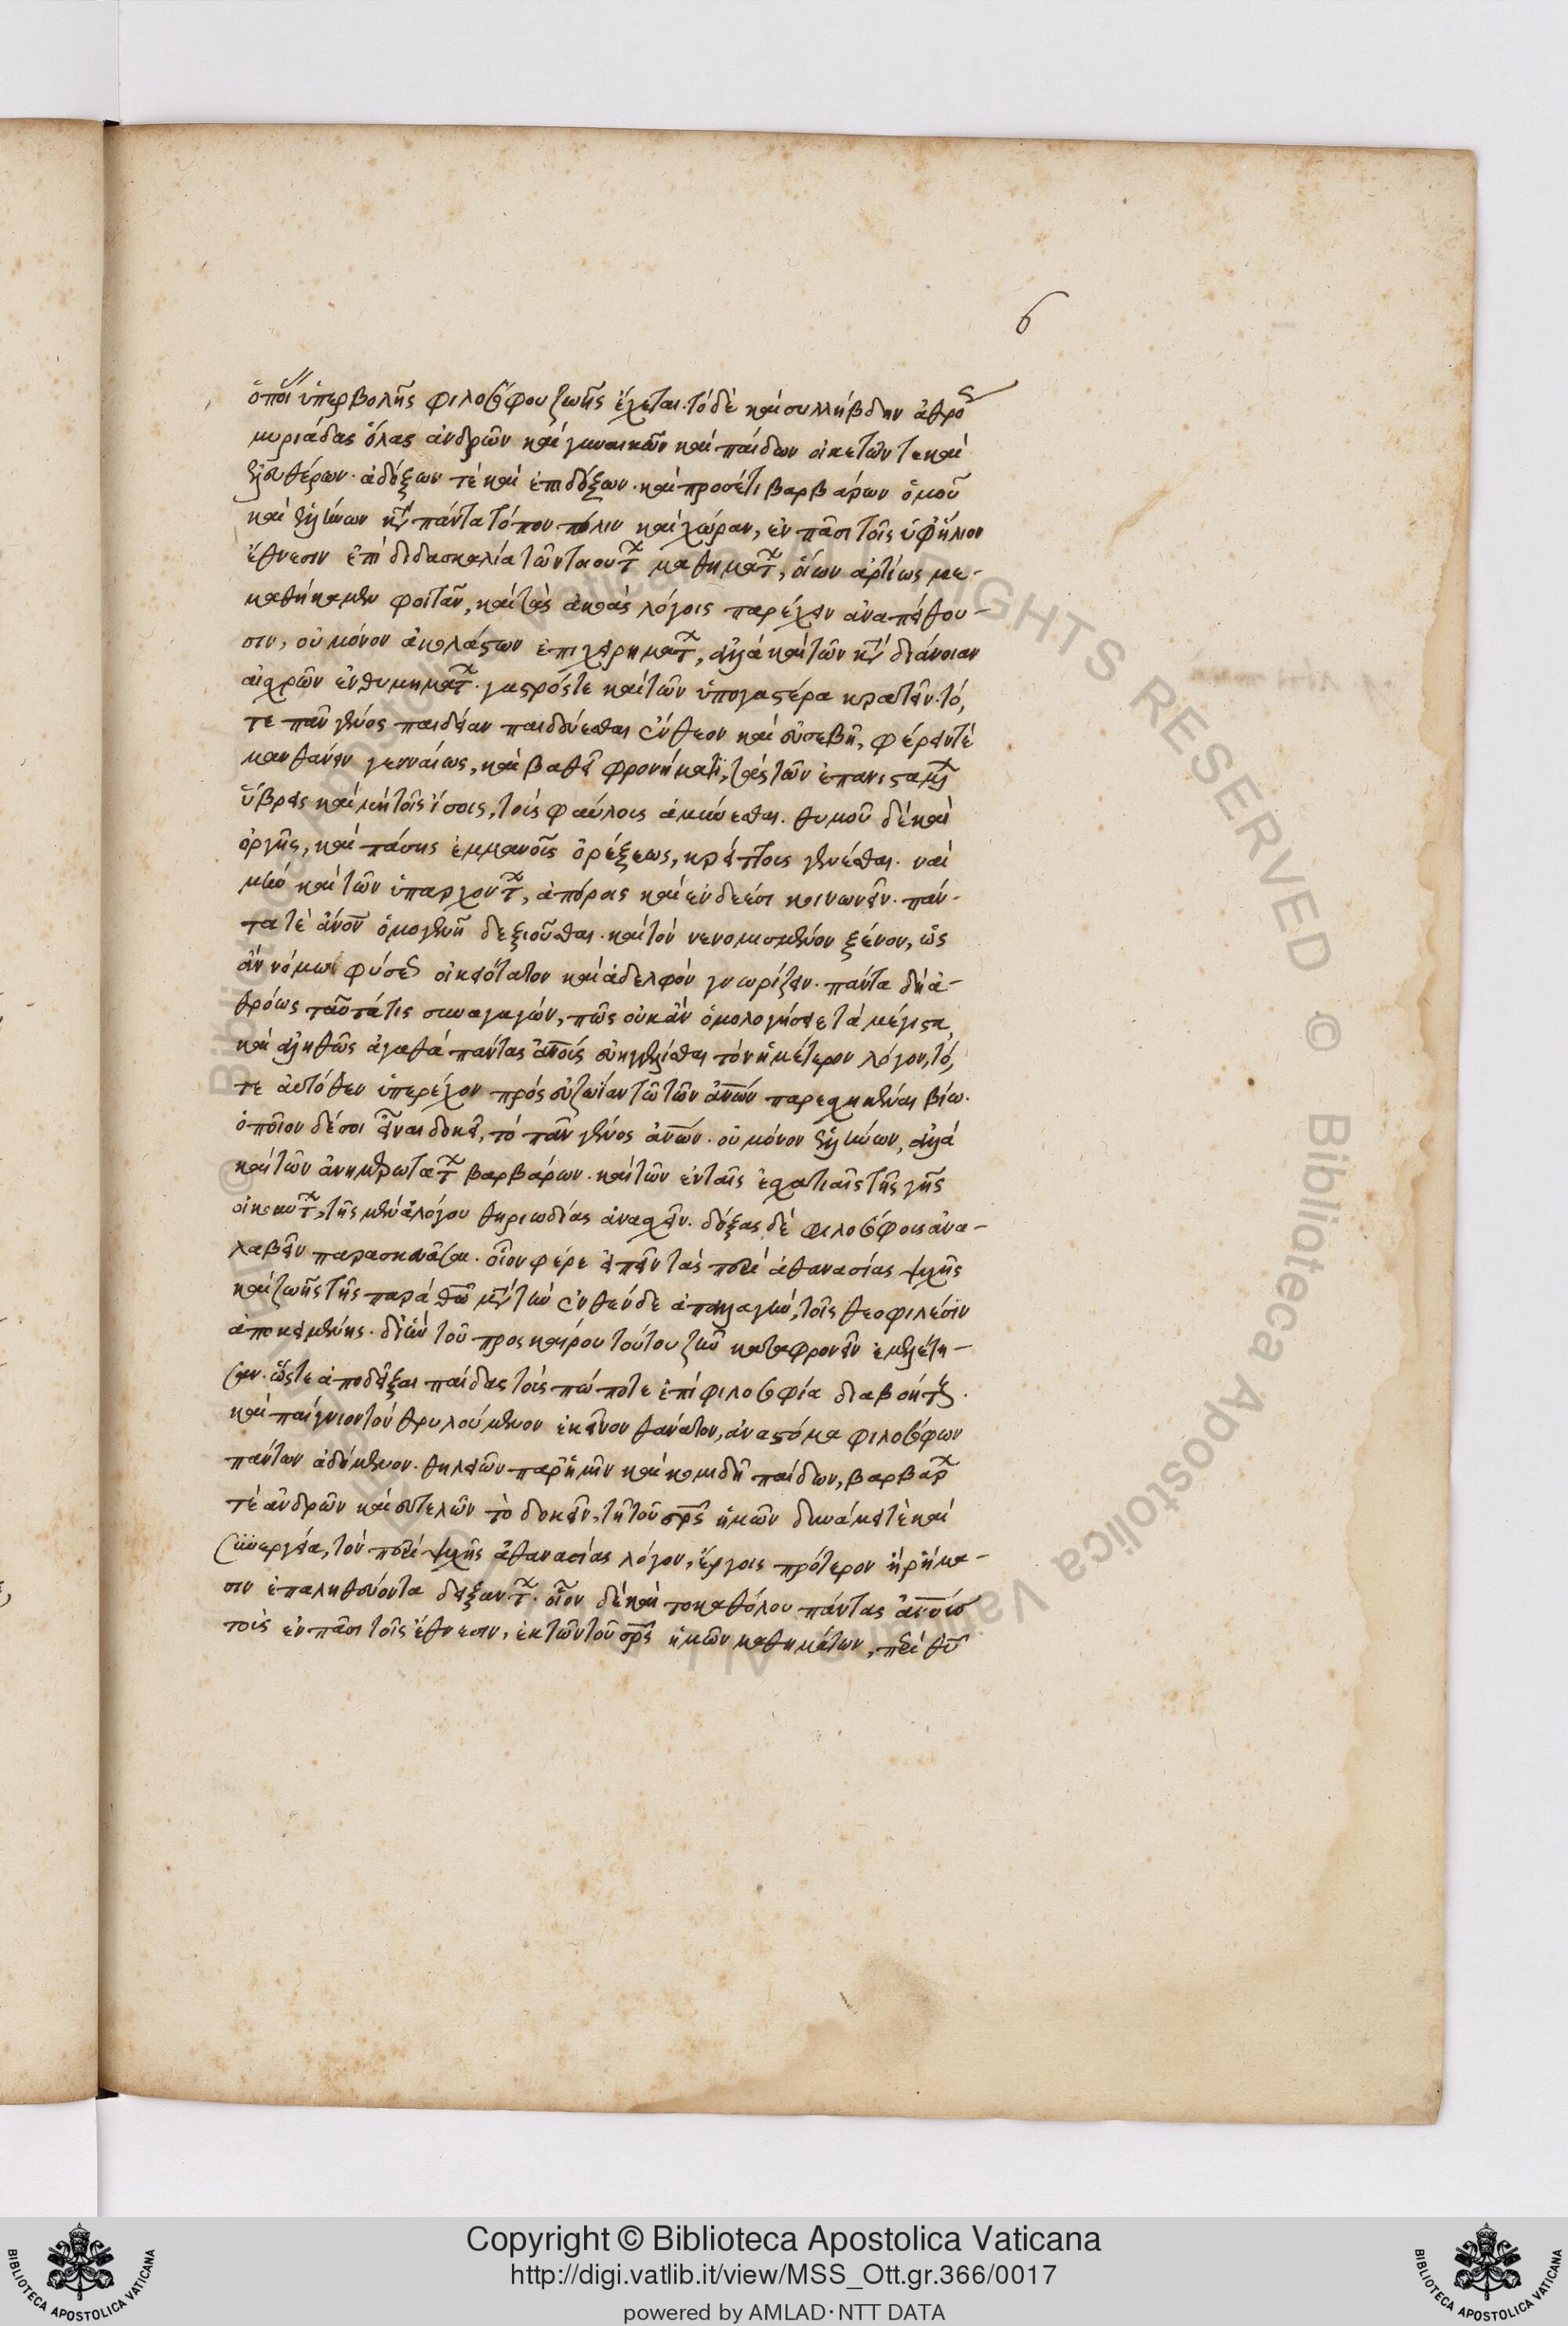 6
ὁποι ὑπερβολῆς φιλοσόφου ζωῆς ἔχεται. τὸ δὲ καὶ συλλήβδην ἀθρο
μυριάδας ὅλας ἀνδρῶν καὶ γυναικῶν καὶ παίδων οἰκετῶν τε καὶ
ἐλευθέρων. ἀδόξων τὲ καὶ ἐπιδόξων. καὶ προσέτι βαρβάρων ὁμοῦ
καὶ ἑλλήνων κατὰ πάντα τόπον πόλιν καὶ χώραν, ἐν πᾶσι τοῖς ὑφήλιον
ἔθνεσιν ἐπὶ διδασκαλία τῶν τιουτ μαθηματ, οἵων ἀρτίως με-
μαθήκαμεν φοιτᾶν, καὶ τὰς ἀκοὰς λόγοις παρέχειν ἀναπείθου-
σιν, οὐ μόνον ἀκολάστων ἐπιχειρηματ, ἀλλὰ καὶ τῶν κατὰ διάνοιαν
αἰσχρῶν ἐνθυμηματ. γαστρός τε καὶ τῶν ὑπὸ γαστέρα κρατεῖν. τό,
τε πᾶν γένος παιδείαν παιδεύεσθαι ἔνθεον καὶ εὐσεβῆ, φέρειν τὲ
μανθάνειν γενναίως, καὶ βαθεῖ φρονήματι, τὰς τῶν ἐπανισταμ
ὕβρεις καὶ μὴ τοῖς ἴσοις, τοὺς φαύλοις ἀμύνεσθαι. θυμοῦ δὲ καὶ
ὀργῆς, καὶ πάσης ἐμμανοῖς ὀρέξεως, κρείττοις γενέσθαι. ναὶ
μὴν καὶ τῶν ὑπαρχοντ, ἀπόροις καὶ ἐνδεέσι κοινωνεῖν. πάν-
τα τὲ ἀνον ὁμογενῆ δεξιοῦσθαι. καὶ τὸν νενομισμένον ξένον, ὡς
ἂν νόμω φύσεως οἰκειότατον καὶ ἀδελφὸν γνωρίζειν. πάντα δὴ ἀ-
θρόως ταῦτά τις συναγαγών, πῶς οὐκ ἂν ὁμολογήσειε τὰ μέγιστα,
καὶ ἀληθῶς ἀγαθὰ πάντας ἀνοις εὐηγγελίσθαι τὸν ἡμέτερον λόγον, τό,
τε αὐτόθεν ὑπερέχον πρὸς εὐζωΐαν τῶ τῶν ἀνων παρεσχηκέναι βίω.
ὁποῖον δέ σοι εἶναι δοκεῖ, τὸ πᾶν γένος ἀνων. οὐ μόνον ἑλλήνων, ἀλλὰ
καὶ τῶν ἀνημερωτατ βαρβάρων. καὶ τῶν ἐν ταῖς ἐσχατιαῖς τῆς γῆς
οἰκουντ, τῆς μὲν ἀλόγου θηριωδίας ἀνασχεῖν. δόξας δὲ φιλοσόφοις ἀνα-
λαβεῖν παρασκευᾶσαι. οἷον φέρε εἰπεῖν τὰς περὶ ἀθανασίας ψυχῆς
καὶ ζωῆς τῆς παρὰ θω μετὰ τὴν ἐνθένδε ἀπαλλαγὴν, τοῖς θεοφιλέσιν
ἀποκειμένης. δι' ἣν τοῦ προσκαίρου τούτου ζῆν καταφρονεῖν ἐμελέτη-
σαν. ὥστε ἀποδεῖξαι παῖδας τοὺς πώποτε ἐπὶ φιλοσοφία διαβοητ.
καὶ παίγνιον τὸν θρυλούμενον ἐκεῖνον θάνατον, ἀνὰ στόμα φιλοσόφων
πάντων ἀδόμενον. θηλειῶν παρ' ἡμῖν καὶ κομιδῆ παίδων, βαρβαρ
τὲ ἀνδρῶν καὶ εὐτελῶν τὸ δοκεῖν, τῆ τοῦ σρς ἡμῶν δυνάμει τὲ καὶ
συνεργεία, τὸν περὶ ψυχῆς ἀθανασίας λόγον, ἔργοις πρότερον ἢ ῥήμα-
σιν ἐπαληθεύοντα δειξαντ. οἷον δὲ καὶ τὸ καθόλου πάντας
τοὺς ἐν πᾶσι τοῖς ἔθνεσιν, ἐκ τῶν τοῦ σρς ἡμῶν μαθημάτων, περὶ θυ
Copyright © Biblioteca Apostolica Vaticana
http://digi.vatlib.it/view/MSS_Ott.gr.366/0017
powered by AMLAD·NTT DATA
BIBLIOTECA APOSTOLICA VATICANA
BIBLIOTECA APOSTOLICA VATICANA